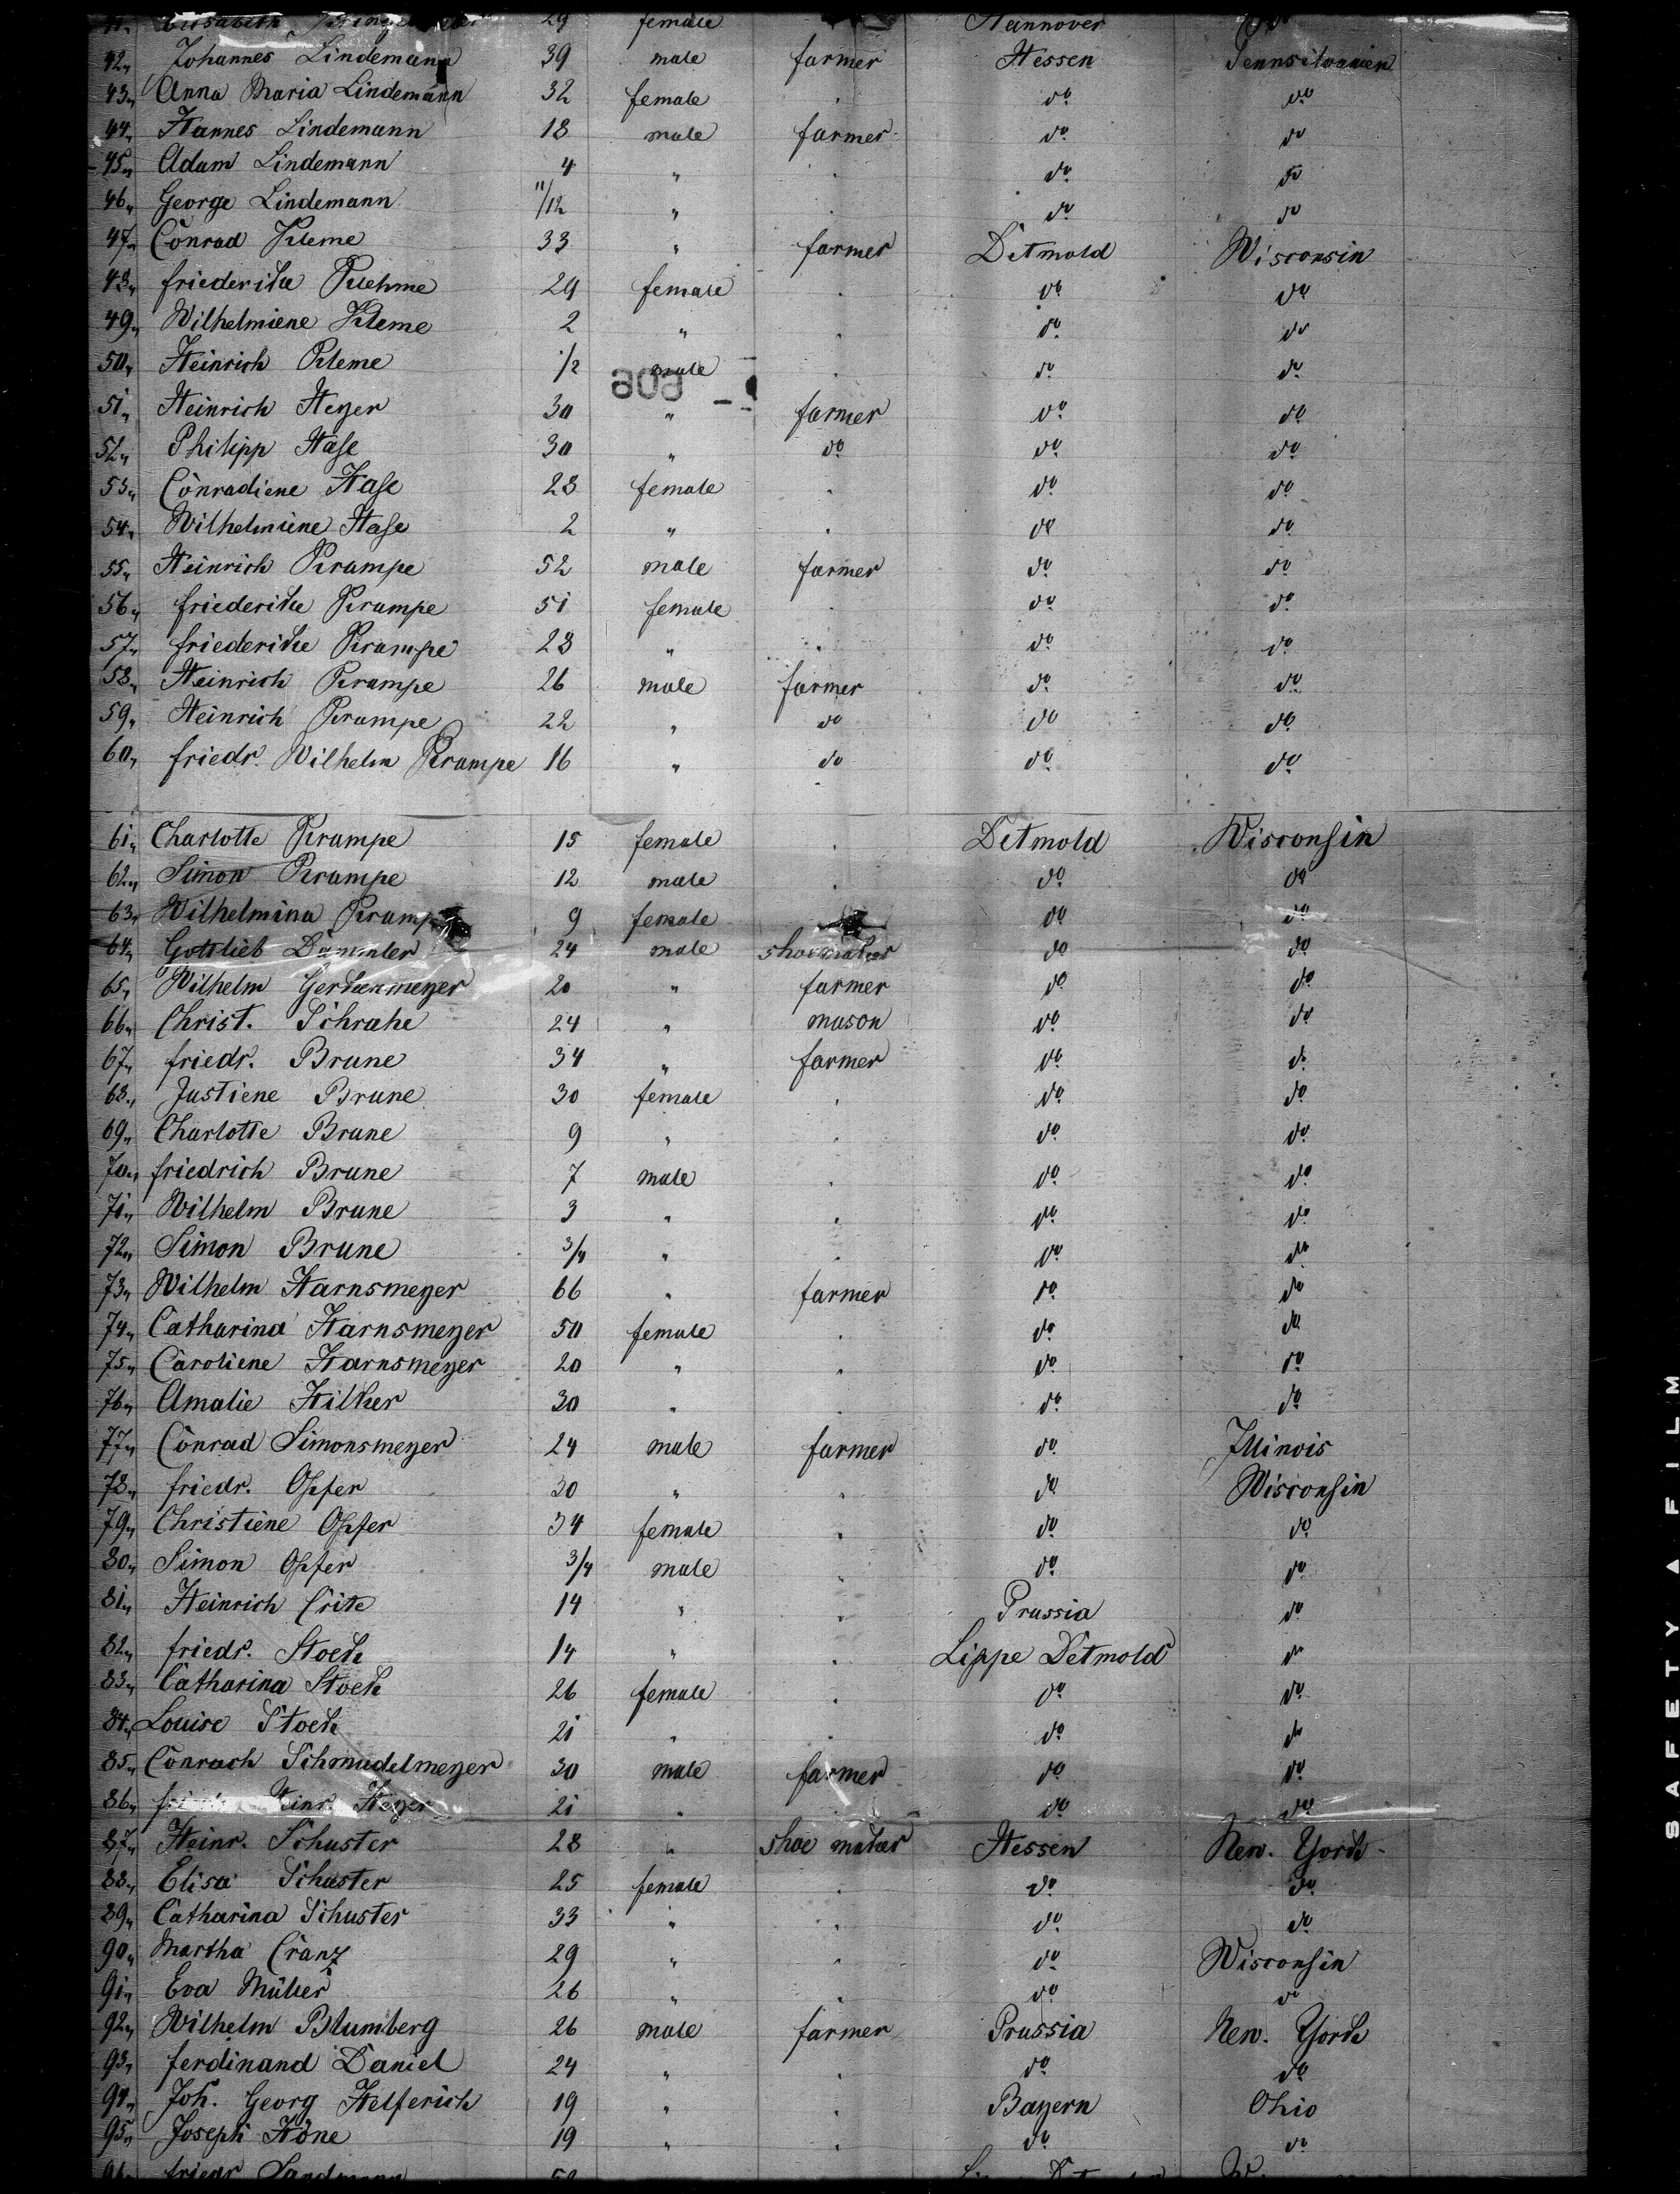 41. Elisabeth 29 female Hannover do
42. Johannes Lindemann 39 male farmer Hessen Pennsilvanien
43. Anna Maria Lindemann 32 female do do
44. Hannes Lindemann 18 male farmer do do
45. Adam Lindemann 4 " do do
46. George Lindemann 11/12 " do do
47. Conrad Kleme 33 " farmer Detmold Wisconsin
48. friederike Klehme 29 female do do
49. Wilhelmiene Kleme 2 " do do
50. Heinrich Kleme 1/2 male do do
51. Heinrich Heyer 30 " farmer do do
52. Philipp Hase 30 " do do do
53. Conradiene Hase 28 female do do
54. Wilhelmiene Hase 2 " do do
55. Heinrich Krampe 52 male farmer do do
56. friederike Krampe 51 female do do
57. friederike Krampe 28 " do do
58. Heinrich Krampe 26 male farmer do do
59. Heinrich Krampe 22 " do do do
60. friedr. Wilhelm Krampe 16 " do do do
61. Charlotte Krampe 15 female Detmold Wisconsin
62. Simon Krampe 12 male do do
63. Wilhelmina Krampe 9 female do do
64. Gottlieb Dammler 24 male shoemaker do do
65. Wilhelm Gerkenmeyer 20 " farmer do do
66. Christ. Schrahe 24 " mason do do
67. friedr. Brune 34 " farmer do do
68. Justiene Brune 30 female do do
69. Charlotte Brune 9 " do do
70. friedrich Brune 7 male do do
71. Wilhelm Brune 3 " do do
72. Simon Brune 3/4 " do do
73. Wilhelm Harnsmeyer 66 " farmer do do
74. Catharina Harnsmeyer 50 female do do
75. Caroliene Harnsmeyer 20 " do do
76. Amalie Hilker 30 " do do
77. Conrad Simonsmeyer 24 male farmer do Illinois
78. friedr. Opfer 30 " do Wisconsin
79. Christiene Opfer 34 female do do
80. Simon Opfer 3/4 male do do
81. Heinrich Crite 14 " Prussia do
82. friedr. Stoek 14 " Lippe Detmold do
83. Catharina Stoek 26 female do do
84. Louise Stoek 21 " do do
85. Conrach Schmudelmeyer 30 male farmer do do
86. Heinr. Heyer 21 " do do
87. Heinr. Schuster 28 " shoe maker Hessen New. York
88. Elisa Schuster 25 female do do
89. Catharina Schuster 33 " do do
90. Martha Cranz 29 " do Wisconsin
91. Eva Müller 26 " do do
92. Wilhelm Blumberg 26 male farmer Prussia New. York
93. ferdinand Daniel 24 " do do
94. Joh. Georg Helferich 19 " Bayern Ohio
95. Joseph Höne 19 " do do
96. friedr Landmann
SAFETY A FILM